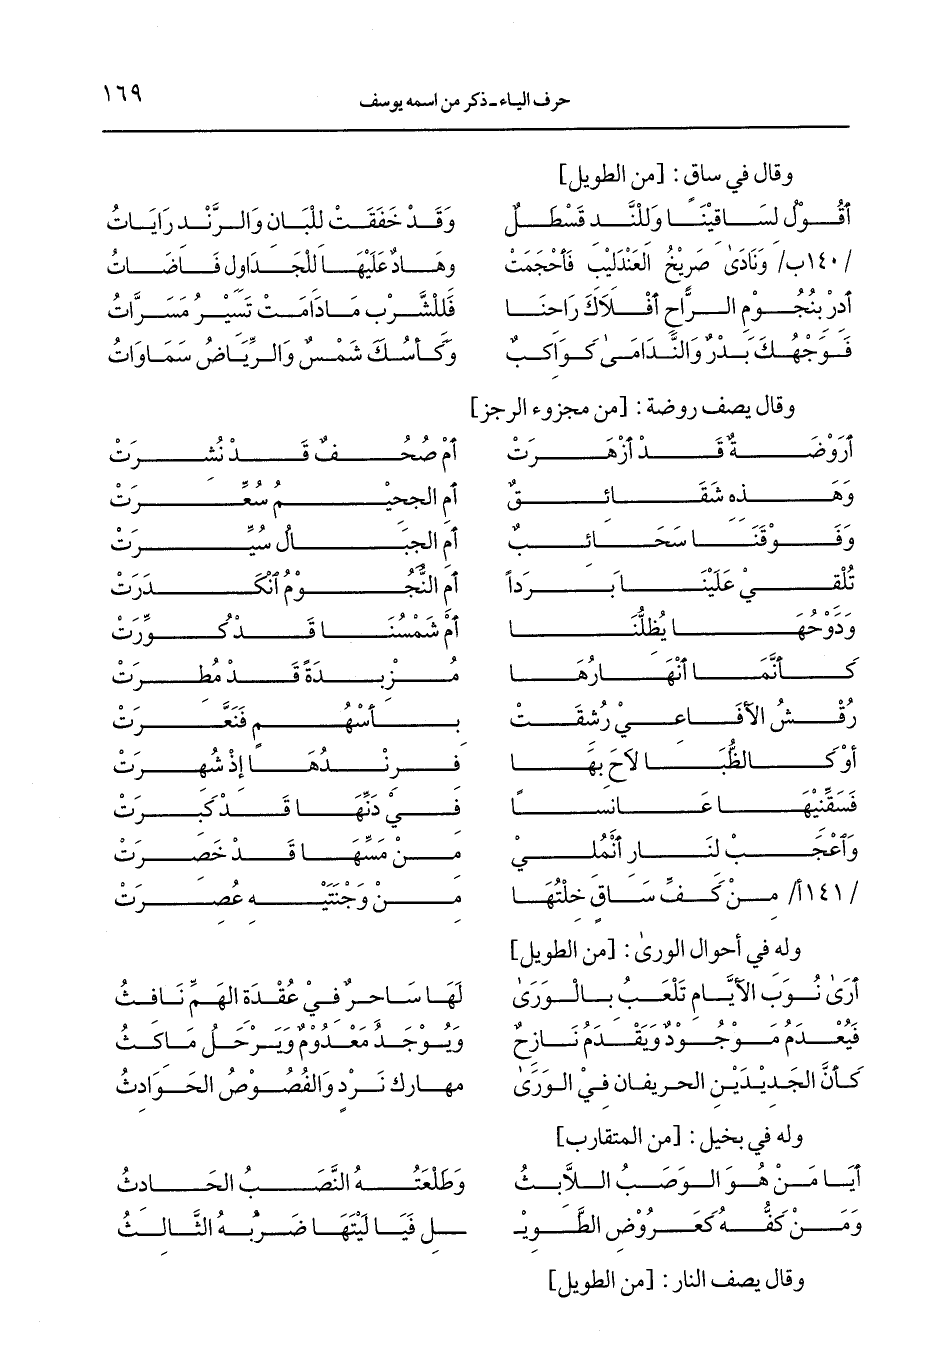 حرف الياء ـ ذكر من اسمه يوسف ١٦٩
وقال في ساق : [من الطويل]
أقُولُ لسَاقينَا وَللنَّد قَسْطَلٌ وَقَدْ خَفَقَتْ للْبَان وَالرَّنْد رَايَاتُ
/١٤٠ب/ وَنَادَىٰ صَريْخُ العَنْدَليْب فَأحْجَمَتْ وهَادٌ عَلَيْهَا للْجَدَاول فَاضَاتُ
أدرْ بنُجُوْم الرَّاح أفْلاَكَ رَاحنَا فَللشَّرْب مَادَامَتْ تَسيْرُ مَسَرَّاتُ
فَوَجْهُكَ بَدْرٌ وَالنَّدَامَىٰ كَوَاكبٌ وَكَأسُكَ شَمْسٌ وَالرِّيَاضُ سَمَاوَاتُ
وقال يصف روضة : [من مجزوء الرجز]
أرَوْضَةٌ قَدْ أزْهَرَتْ أمْ صُحُفٌ قَدْ نُشرَتْ
وَهَذه شَقَائقٌ أم الجحيْمُ سُعِّرَتْ
وَفَوْقَنَا سَحَائبٌ أم الجبَالُ سُيِّرَتْ
تُلْقيْ عَلَيْنَا بَرَداً أم النُّجُوْمُ أنْكَدَرَتْ
وَدَوْحُهَا يُظلُّنَا أمْ شَمْسُنَا قَدْ كُوِّرَتْ
كَأنَّمَا أنْهَارُهَا مُزْبدَةً قَدْ مُطرَتْ
رُقْشُ الأفَاعيْ رُشقَتْ بأسْهُم فَنَعَّرَتْ
أوْ كَالظُّبَا لاَحَ بهَا فرنْدُهَا إذْ شُهرَتْ
فَسَقِّنيْهَا عَانسًا فيْ دَنِّهَا قَدْ كَبرَتْ
وَأعْجَبْ لنَار أنْمُليْ منْ مَسِّهَا قَدْ خَصرَتْ
/١٤١أ/ منْ كَفِّ سَاق خلْتُهَا منْ وَجْنَتَيْه عُصرَتْ
وله في أحوال الورىٰ : [من الطويل]
أرَىٰ نُوَبَ الأيَّام تَلْعَبُ بالْوَرَىٰ لَهَا سَاحرٌ فيْ عُقْدَة الهَمِّ نَافثُ
فَيُعْدَمُ مَوْجُوْدٌ وَيَقْدَمُ نَازحٌ وَيُوْجَدُ مَعْدُوْمٌ وَيَرْحَلُ مَاكثُ
كَأنَّ الجَديْدَيْن الحريفَان فيْ الوَرَىٰ مهارك نَرْد وَالفُصُوْصُ الحَوَادثُ
وله في بخيل : [من المتقارب]
أيَا مَنْ هُوَ الوَصَبُ اللاَّبثُ وَطَلْعَتُهُ النَّصَبُ الحَادثُ
وَمَنْ كَفُّهُ كَعَرُوْض الطَّويْـ ـل فَيَا لَيْتَهَا ضَربُهُ الثَّالثُ
وقال يصف النار : [من الطويل]